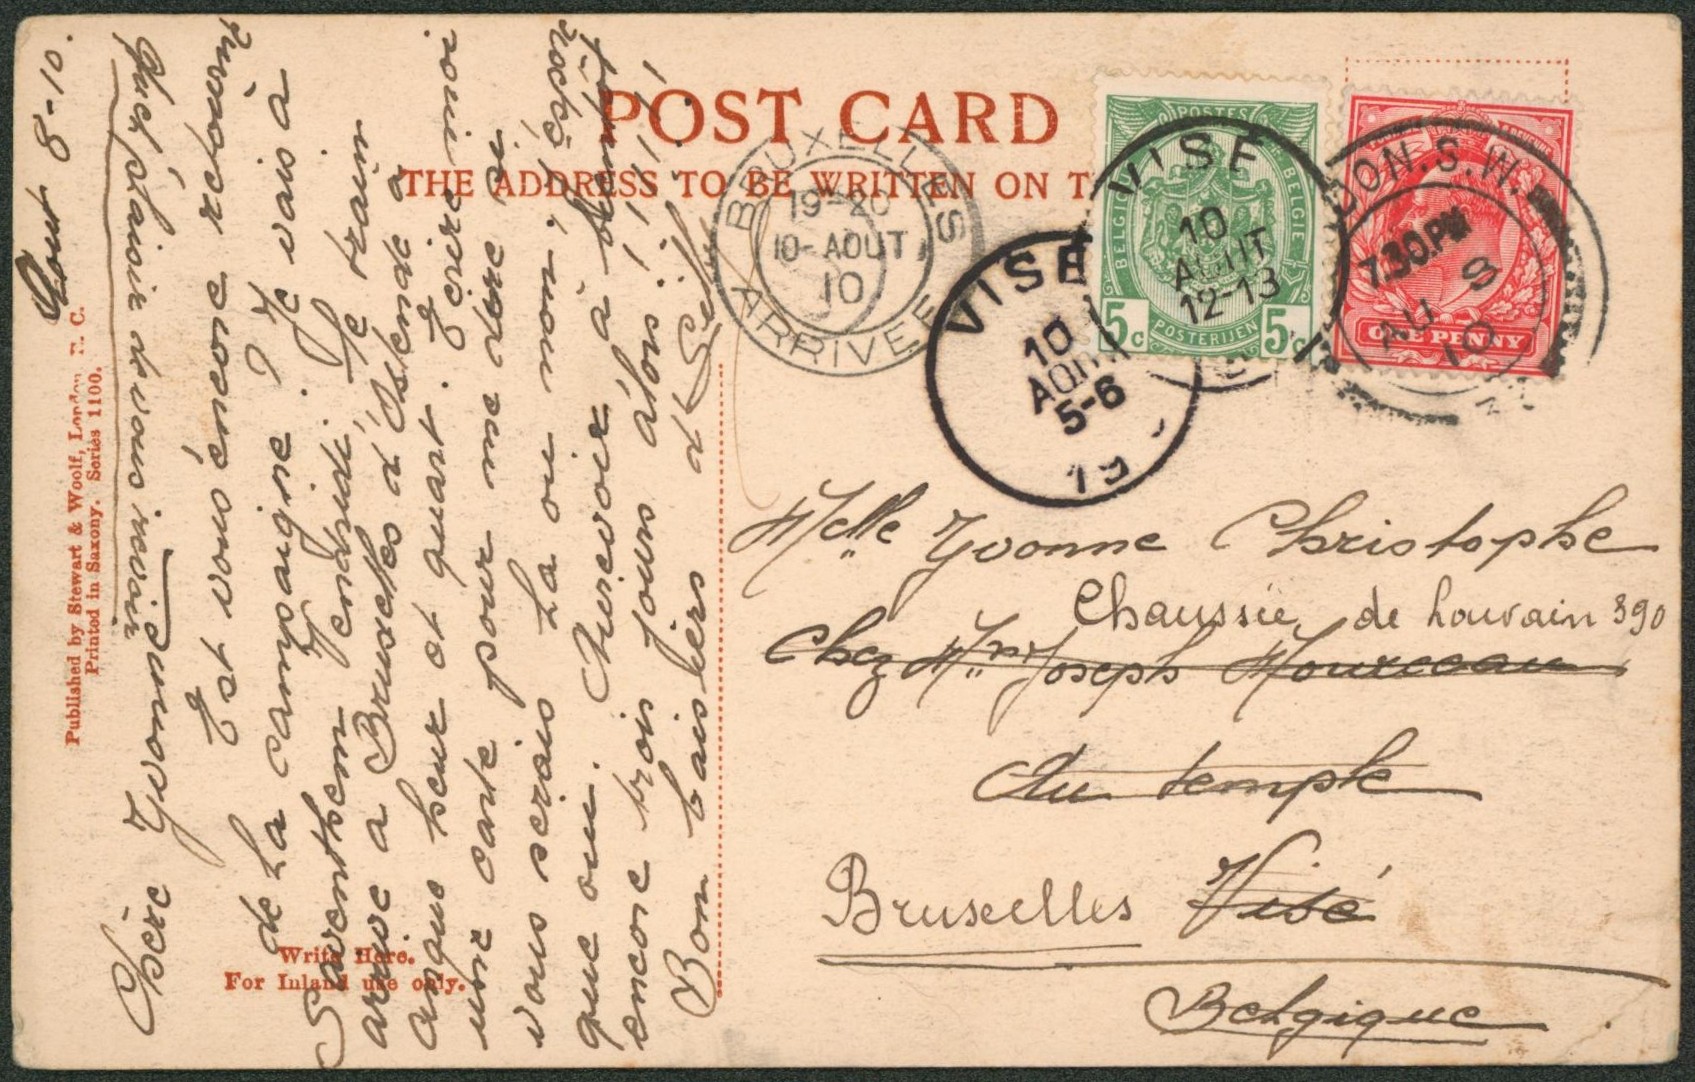 POST CARD
THE ADDRESS TO BE WRITTEN ON T
BRUXELLES
19-20
10-AOUT
10
ARRIVEE
VISE
10
AOUT
5-6
19
VISE
10
AOUT
12-13
POSTES
BELGIQUE
BELGIE
5c
POSTERIJEN
5c
DON.S.W.
7.30.PM
AU 8
10
ONE PENNY
Melle Yvonne Christophe
Chaussée de Louvain 390
Chez Mr Joseph
Au temple
Bruxelles Visé
Belgique
Published by Stewart & Woolf, London E. C.
Printed in Saxony. Series 1100.
Write Here.
For Inland use only.
Aout 8-10.
Quel plaisir de vous revoir
Yvonne
Est vous encore retourné
de La campagne? Je vais à
Saventhem Vendredi, Le train
arrive a Bruxelles d'Ostende a
heur et quart. Ecrire moi
une carte pour me dire si
vous serais La ou non,
que oui. Aurevoir, a bientôt
encore trois jours alors!!!!!!
Bon baisiers d